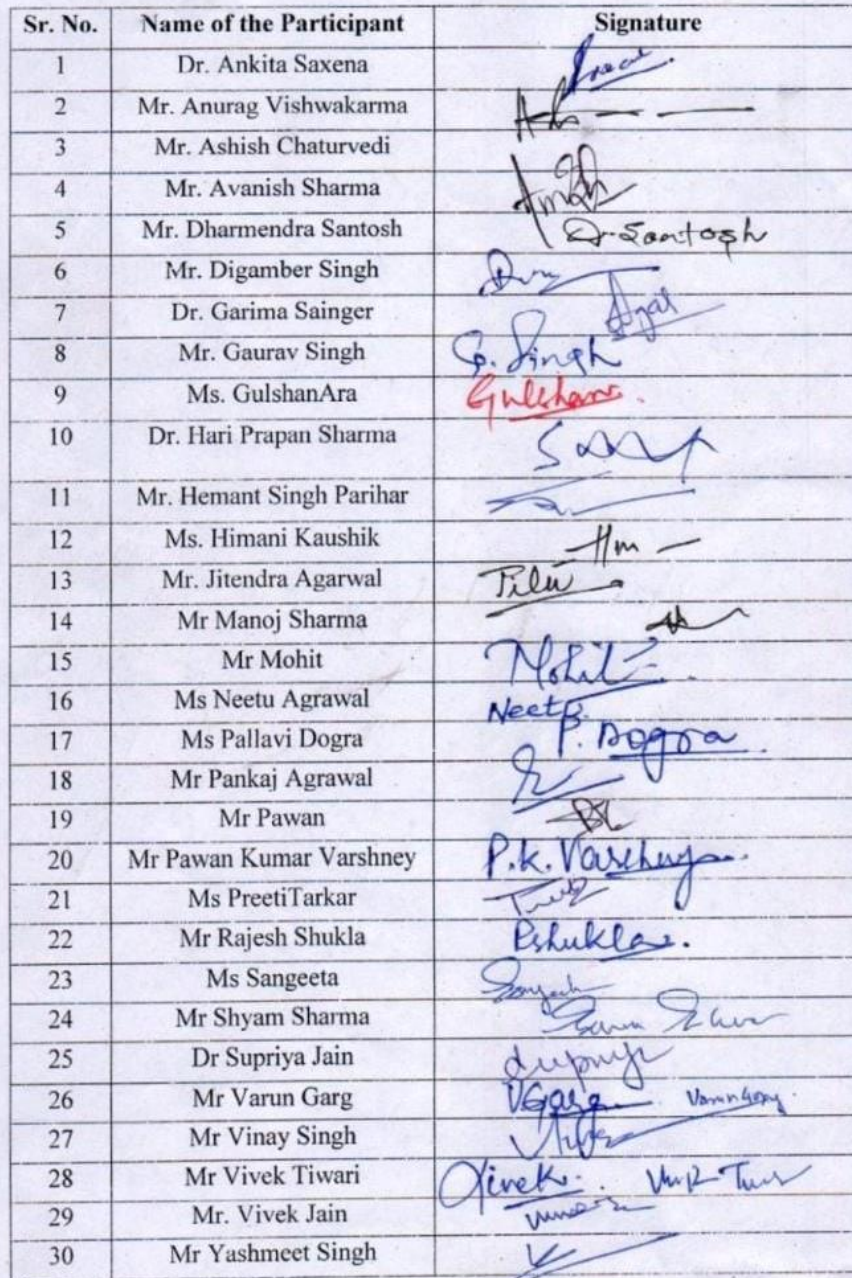 Sr. No. Name of the Participant Signature
1 Dr. Ankita Saxena
2 Mr. Anurag Vishwakarma
3 Mr. Ashish Chaturvedi
4 Mr. Avanish Sharma
5 Mr. Dharmendra Santosh Dr. Santosh
6 Mr. Digamber Singh
7 Dr. Garima Sainger
8 Mr. Gaurav Singh G. Singh
9 Ms. GulshanAra Gulshan
10 Dr. Hari Prapan Sharma
11 Mr. Hemant Singh Parihar
12 Ms. Himani Kaushik Hm
13 Mr. Jitendra Agarwal
14 Mr Manoj Sharma
15 Mr Mohit Mohit
16 Ms Neetu Agrawal Neetu
17 Ms Pallavi Dogra P. Dogra
18 Mr Pankaj Agrawal
19 Mr Pawan
20 Mr Pawan Kumar Varshney P.K. Varshney
21 Ms PreetiTarkar
22 Mr Rajesh Shukla Rshukla.
23 Ms Sangeeta
24 Mr Shyam Sharma
25 Dr Supriya Jain Supriya
26 Mr Varun Garg VGarg Varun Garg
27 Mr Vinay Singh
28 Mr Vivek Tiwari Vivek.
29 Mr. Vivek Jain
30 Mr Yashmeet Singh